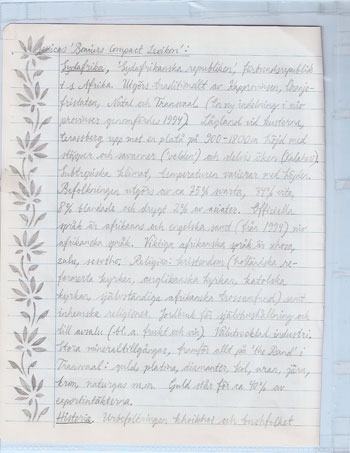 'Bonniers Compact Lexikon':
Sydafrika, 'Sydafrikanska republiken', förbundsrepublik
i S Afrika. Utgörs traditionellt av Kapprovinsen, Oranje-
fristaten, Natal och Transvaal (En ny indelning i nio
provinser genomfördes 1994). Lågland vid kusterna,
terassberg upp mot en platå på 900-1800 m höjd med
stäpper och savanner ('velden') och delvis öken (Kalahari).
Subtropiska klimat, temperaturen varierar med höjden.
Befolkningen utgörs av ca 75% svarta, 14% vita,
8% blandade och drygt 2% av asiater. Officiella
språk är afrikaans och engelska samt (från 1994) nio
afrikanska språk. Viktiga afrikanska språk är xhosa,
zulu, sesotho. Religion: kristendom (holländska re-
formerta kyrkan, anglikanska kyrkan, katolska
kyrkan, självständiga afrikanska trossamfund) samt
inhemska religioner. Jordbruk för självhushållning och
till avsalu (bl.a. frukt och vin). Välutvecklad industri.
Stora mineraltillgångar, framför allt på 'the Rand' i
Transvaal: guld, platina, diamanter, kol, uran, järn,
krom, naturgas m.m. Guld står för ca 40% av
exportintäkterna.
Historia. Urbefolkningen khoikhoi och